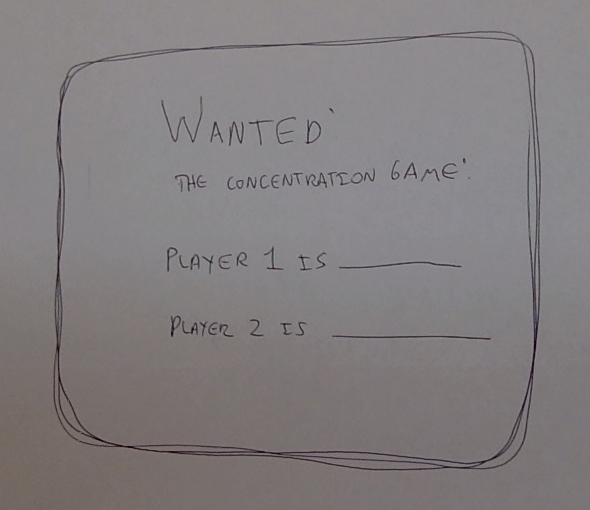 WANTED'
THE CONCENTRATION GAME'.
PLAYER 1 IS ________
PLAYER 2 IS ________